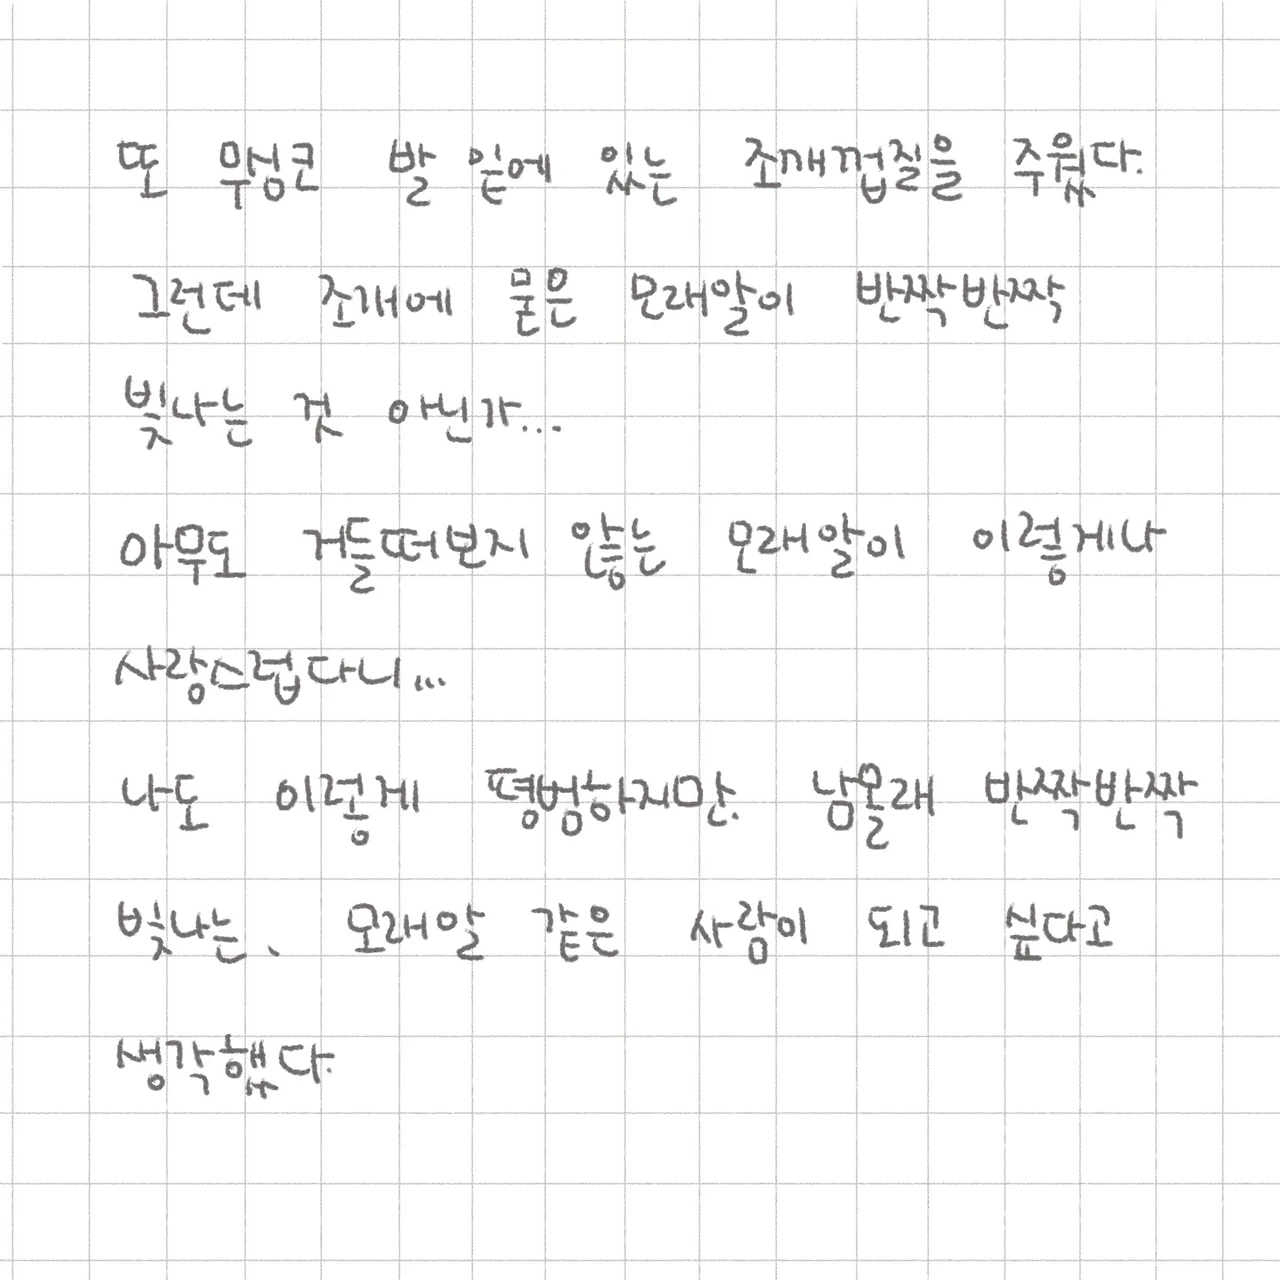 또 무심코 발 밑에 있는 조개껍질을 주웠다.
그런데 조개에 묻은 모래알이 반짝반짝
빛나는 것 아닌가...
아무도 거들떠보지 않는 모래알이 이렇게나
사랑스럽다니...
나도 이렇게 평범하지만. 남몰래 반짝반짝
빛나는, 모래알 같은 사람이 되고 싶다고
생각했다.